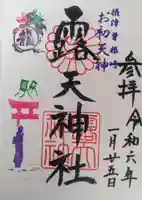 参拝 令和六年
一月廿五日
摂津曽根崎
お初天神
露天神社